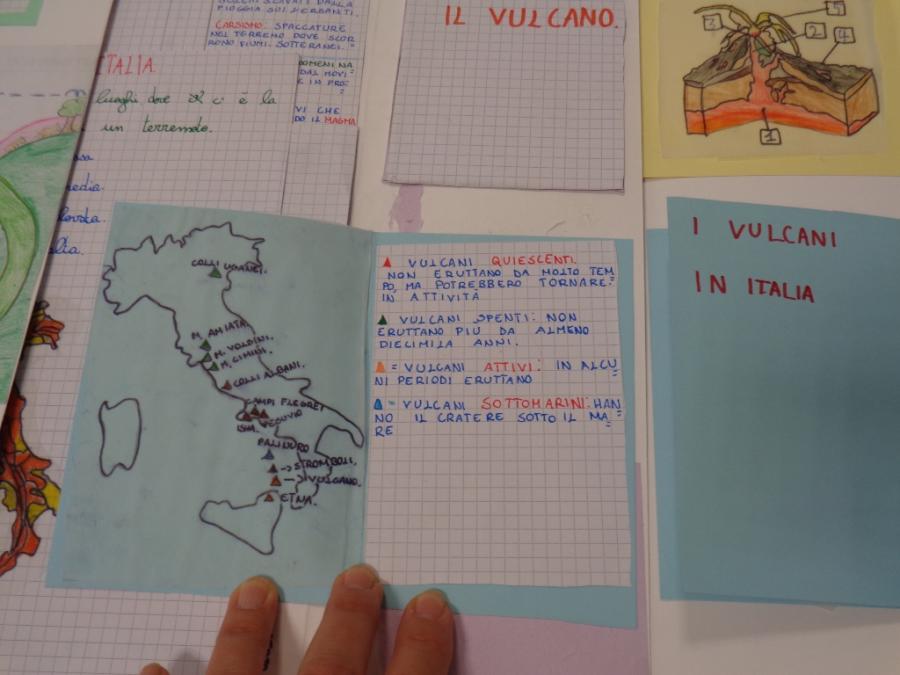 PIOGGIA SUI VERSANTI.
CARSISMO. SPACCATURE
NEL TERRENO DOVE SCOR
RONO FIUMI. SOTTERANEI.
ITALIA
luoghi dove c'è la
un terremoto.
media.
OMENI NA
DAL MOVI=
E IN PROF
VI CHE
DO IL MAGMA
IL VULCANO.
3
5
2
4
1
COLLI EUGANEI.
M. AMIATA.
M. VOLSINI.
M. CIMINI.
COLLI ALBANI.
CAMPI FLEGREI
VESUVIO
PALINURO
→ STROMBOLI.
→ VULCANO.
ETNA.
VULCANI QUIESCENTI.
NON ERUTTANO DA MOLTO TEM
PO, MA POTREBBERO TORNARE
IN ATTIVITÀ
VULCANI SPENTI: NON
ERUTTANO PIU DA ALMENO
DIECIMILA ANNI.
= VULCANI ATTIVI: IN ALCU
NI PERIODI ERUTTANO
= VULCANI SOTTOMARINI: HAN=
NO IL CRATERE SOTTO IL MA=
RE
I VULCANI
IN ITALIA